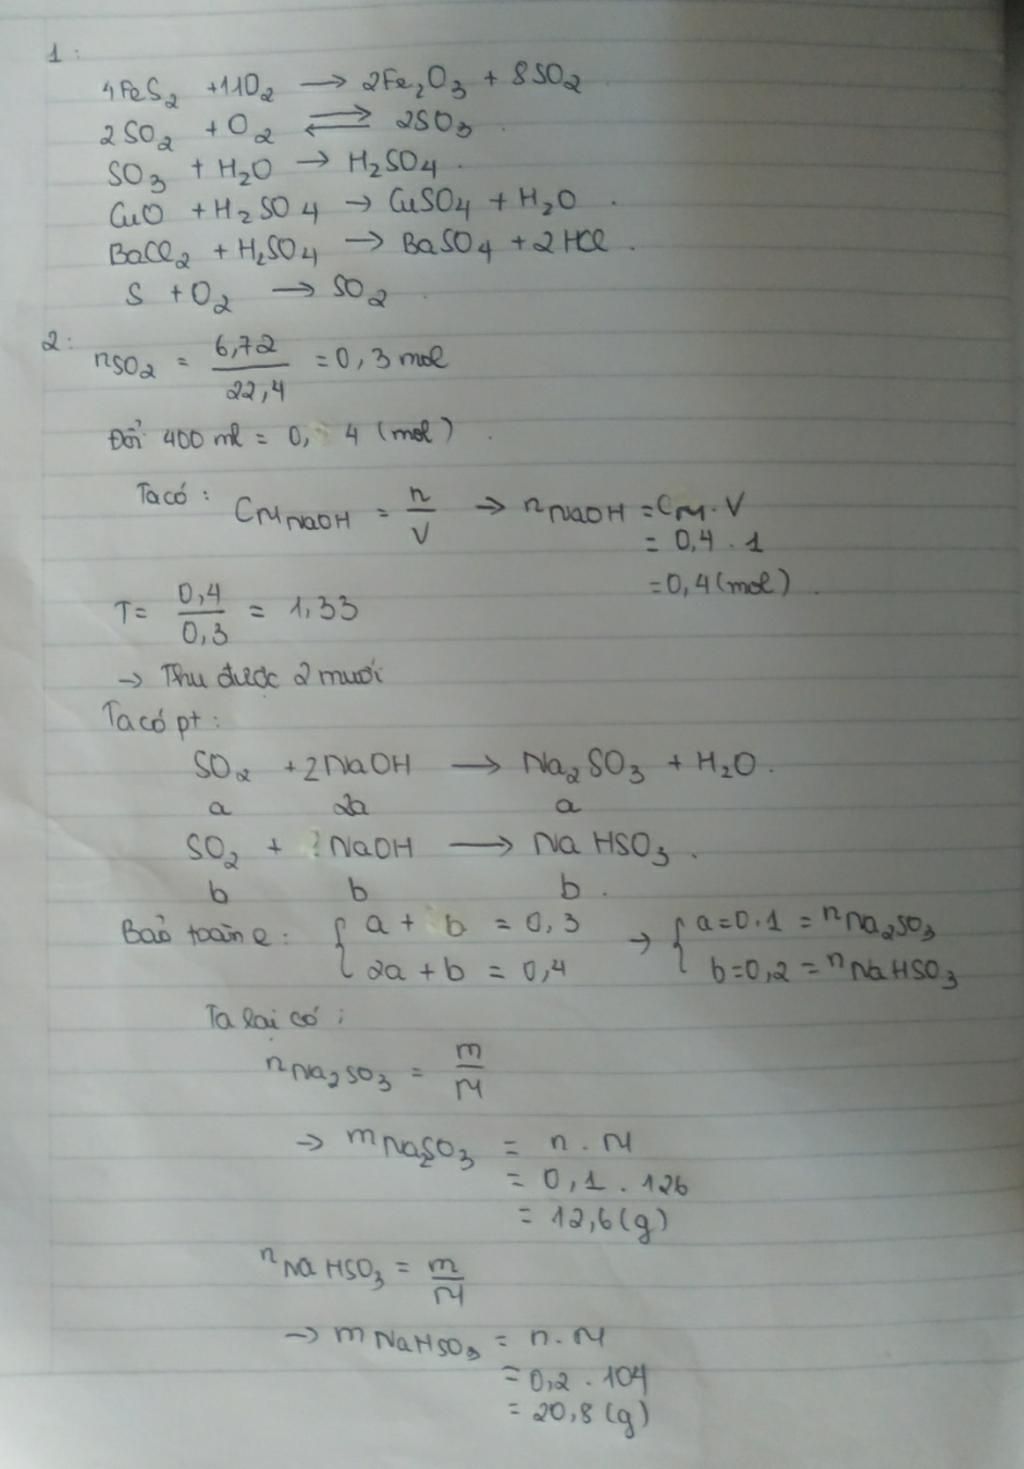 1:
4FeS2 + 11O2 → 2Fe2O3 + 8SO2
2SO2 + O2 ⇌ 2SO3.
SO3 + H2O → H2SO4.
CuO + H2SO4 → CuSO4 + H2O.
BaCl2 + H2SO4 → BaSO4 + 2HCl.
S + O2 → SO2.
2: nSO2 = 6,72/22,4 = 0,3 mol
Đổi 400 ml = 0,4 (mol).
Ta có: CM NaOH = n/V → nNaOH = CM.V
= 0,4.1
= 0,4 (mol).
T = 0,4/0,3 = 1,33
→ Thu được 2 muối
Ta có pt:
SO2 + 2NaOH → Na2SO3 + H2O.
a 2a a
SO2 + NaOH → NaHSO3.
b b b.
Bảo toàn e: { a + b = 0,3 → { a = 0.1 = nNa2SO3
2a + b = 0,4 b = 0,2 = nNaHSO3
Ta lại có:
nNa2SO3 = m/M
→ mNa2SO3 = n.M
= 0,1.126
= 12,6 (g)
nNaHSO3 = m/M
→ mNaHSO3 = n.M
= 0,2.104
= 20,8 (g)